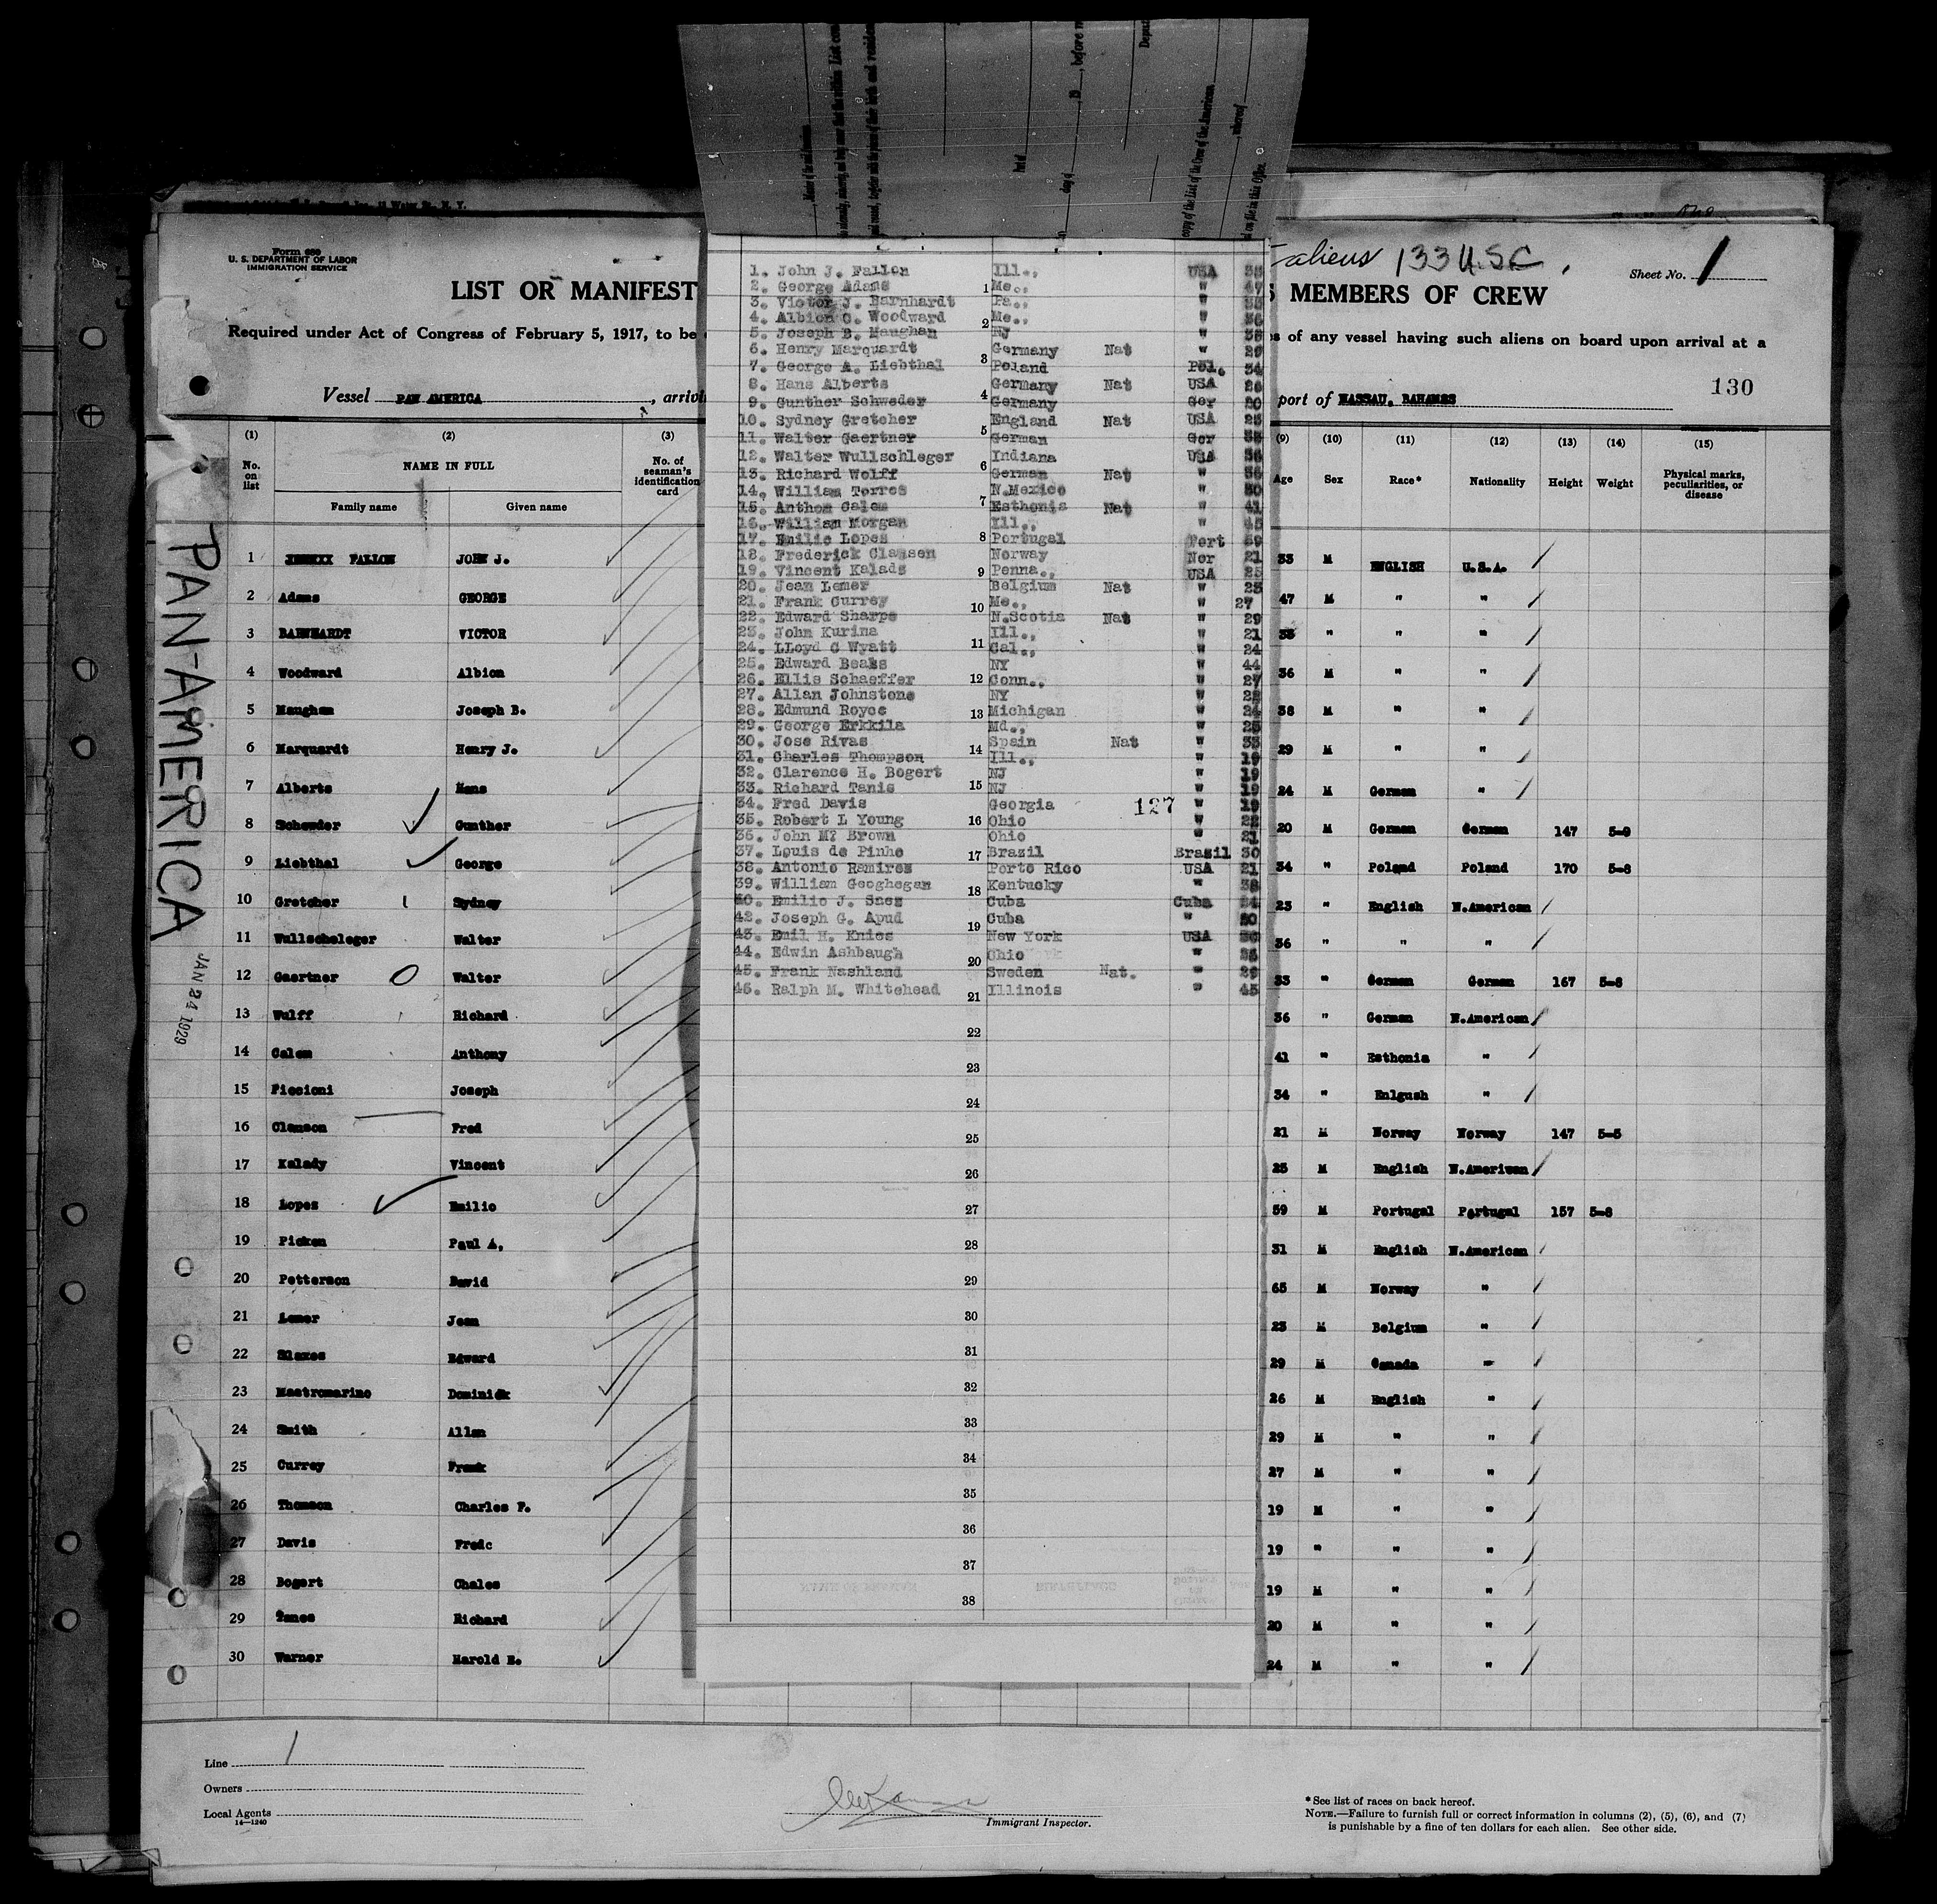 Form 680
U. S. DEPARTMENT OF LABOR
IMMIGRATION SERVICE
aliens 133 U.S.C.
Sheet No. 1
LIST OR MANIFEST
MEMBERS OF CREW
Required under Act of Congress of February 5, 1917, to be
of any vessel having such aliens on board upon arrival at a
130
Vessel PAN AMERICA, arrivi
port of NASSAU, BAHAMAS
PAN-AMERICA
JAN 24 1929
(1) (2) (3)
No. on list
NAME IN FULL
Family name Given name
No. of seaman's identification card
(9) (10) (11) (12) (13) (14) (15)
Age Sex Race* Nationality Height Weight Physical marks, peculiarities, or disease
1 FALLON JOHN J. 33 M ENGLISH U.S.A.
2 Adams GEORGE 47 M " "
3 BARNHARDT VICTOR 35 " " "
4 Woodward Albion 36 M " "
5 Maughan Joseph B. 38 M " "
6 Marquardt Henry J. 29 M " "
7 Alberts Hans 24 M German "
8 Schewder Gunther 20 M German German 147 5-9
9 Liebthal George 34 " Poland Poland 170 5-8
10 Gretcher Sydney 23 " English N.American
11 Wullscheleger Walter 36 " " "
12 Gaertner Walter 33 " German German 167 5-8
13 Wulff Richard 36 " German N.American
14 Calem Anthony 41 " Esthonia "
15 Piccioni Joseph 34 " Enlgush "
16 Clanson Fred 21 M Norway Norway 147 5-5
17 Kalady Vincent 25 M English N.American
18 Lopez Emilio 59 M Portugal Portugal 157 5-8
19 Picken Paul A. 31 M English N.American
20 Petterson David 65 M Norway "
21 Lemer Jean 23 M Belgium "
22 Edward 29 M Canada "
23 Mastromarino Dominick 26 M English "
24 Smith Allan 29 M " "
25 Currey Frank 27 M " "
26 Thomson Charles F. 19 M " "
27 Davis Fredc 19 " " "
28 Bogert Chales 19 M " "
29 Tanes Richard 20 M " "
30 Warner Harold E. 24 M " "
1. John J. Fallon Ill., USA 33
2. George Adams Me., " 47
3. Victor J. Barnhardt Pa., " 35
4. Albion C. Woodward Me., " 36
5. Joseph B. Maughan NJ " 38
6. Henry Marquardt Germany Nat " 29
7. George A. Liebthal Poland Pol. 34
8. Hans Alberts Germany Nat USA 26
9. Gunther Schweder Germany Ger 20
10. Sydney Gretcher England Nat USA 23
11. Walter Gaertner German Ger 33
12. Walter Wullschleger Indiana USA 36
13. Richard Wolff German Nat " 36
14. William Torres N.Mexico " 30
15. Anthon Calem Esthonia Nat " 41
16. William Morgan Ill., " 45
17. Emilio Lopes Portugal Port 59
18. Frederick Clamsen Norway Nor 21
19. Vincent Kalads Penna., USA 25
20. Jean Lemer Belgium Nat " 23
21. Frank Currey Me., " 27
22. Edward Sharpe N.Scotia Nat " 29
23. John Kurina Ill., " 21
24. LLoyd C Wyatt Cal., " 24
25. Edward Beaks NY " 44
26. Ellis Schaeffer Conn., " 27
27. Allan Johnstone NY " 22
28. Edmund Royce Michigan " 24
29. George Erkkila Md., " 25
30. Jose Rivas Spain Nat " 33
31. Charles Thompson Ill., " 19
32. Clarence H. Bogert NJ " 19
33. Richard Tanis NJ " 19
34. Fred Davis Georgia 127 " 19
35. Robert L Young Ohio " 22
36. John M? Brown Ohio " 21
37. Louis de Pinho Brazil Brazil 30
38. Antonio Ramires Porto Rico USA 21
39. William Geoghegan Kentucky " 38
40. Emilio J. Saez Cuba Cuba 24
42. Joseph G. Apud Cuba " 20
43. Emil H. Knies New York USA
44. Edwin Ashbaugh Ohio "
45. Frank Nashland Sweden Nat. " 29
46. Ralph M. Whitehead Illinois " 45
1
2
3
4
5
6
7
8
9
10
11
12
13
14
15
16
17
18
19
20
21
22
23
24
25
26
27
28
29
30
31
32
33
34
35
36
37
38
Line 1
Owners
Local Agents
14—1240
Immigrant Inspector.
*See list of races on back hereof.
NOTE.—Failure to furnish full or correct information in columns (2), (5), (6), and (7)
is punishable by a fine of ten dollars for each alien. See other side.